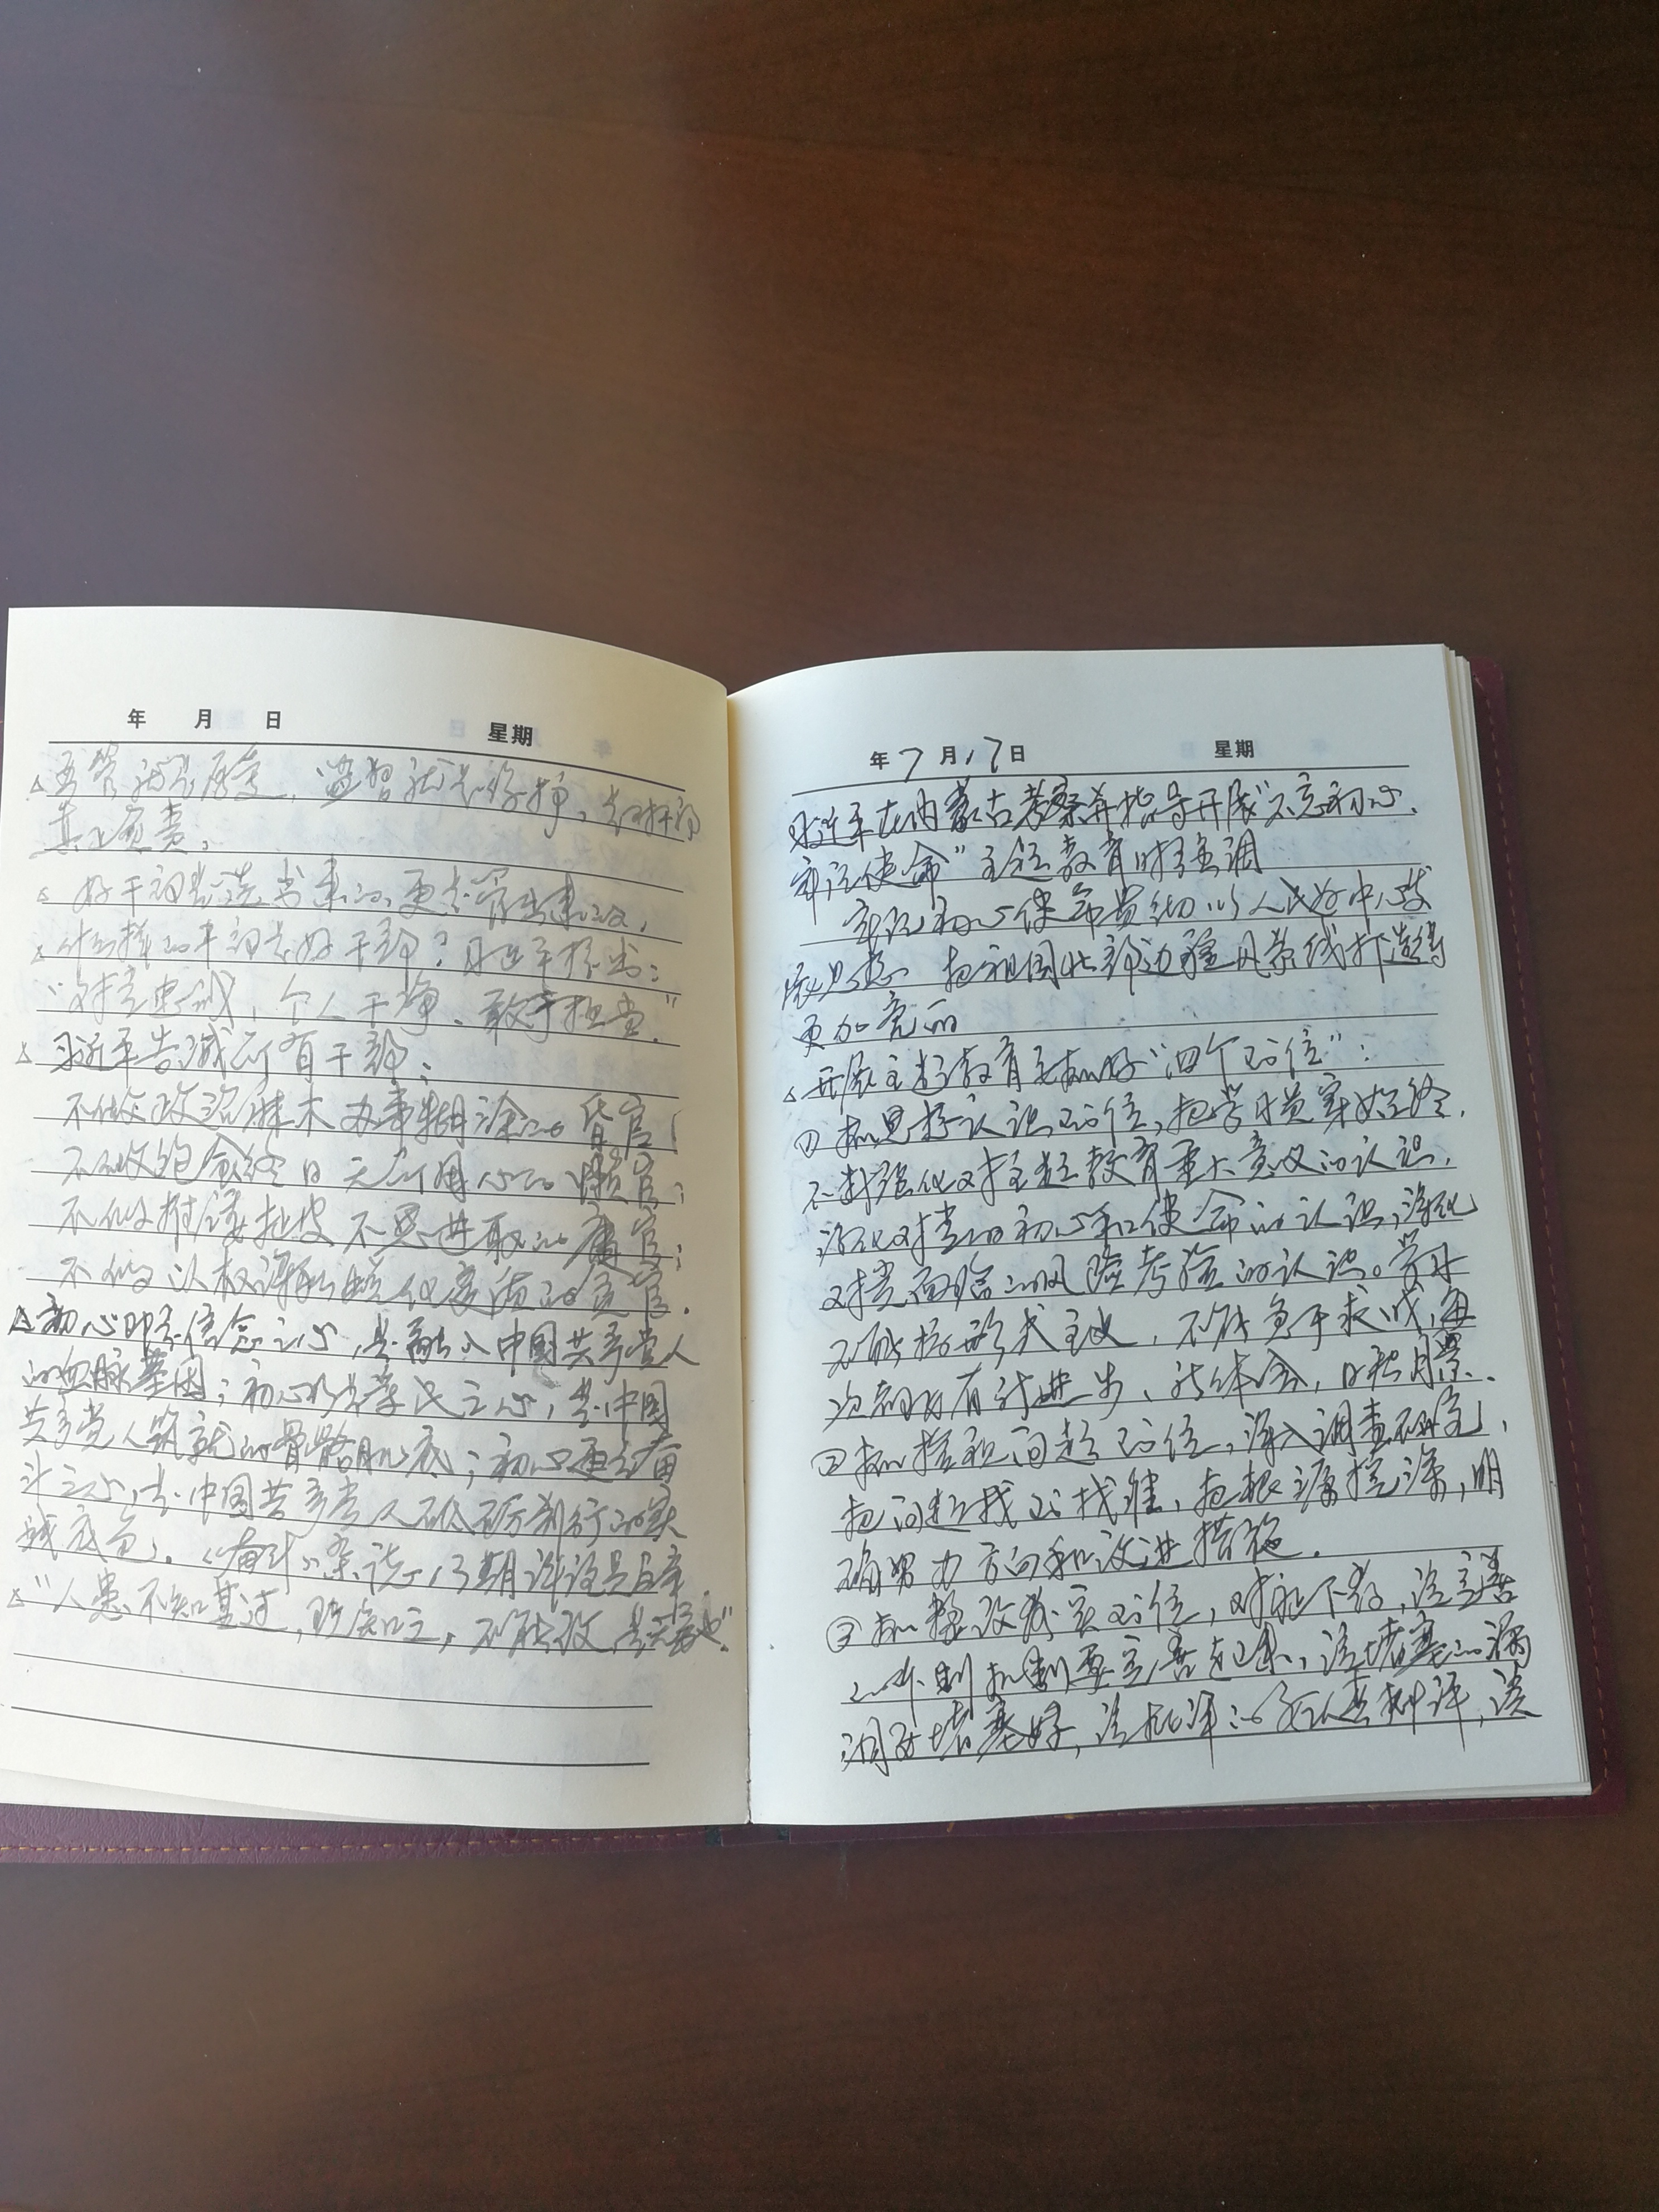 年 月 日 星期
△严管就是厚爱,监督就是保护,对干部
真正负责。
△好干部是选出来的,更是管出来的,
△什么样的干部是好干部?习近平指出:
“对党忠诚,个人干净、敢于担当.”
△习近平告诫所有干部:
不做政治麻木 办事糊涂的昏官;
不做饱食终日 无所用心的懒官;
不做推诿扯皮 不思进取的庸官;
不做以权谋私 蜕化变质的贪官.
△初心即是信念之心,是融入中国共产党人
的血脉基因;初心是为民之心,是中国
共产党人筑就的骨骼肌底;初心更是奋
斗之心,是中国共产党人砥砺前行的实
践底色。《奋斗》杂志13期评论员文章
△“人患不知其过,既知之,不能改,是无勇也”.
年7月17日 星期
习近平在内蒙古考察并指导开展“不忘初心、
牢记使命”主题教育时强调
牢记初心使命贯彻以人民为中心发
展思想 把祖国北部边疆风景线打造得
更加亮丽
△开展主题教育要抓好“四个到位”:
①抓思想认识到位,把学习贯穿始终,
不断强化对主题教育重大意义的认识,
深化对党的初心和使命的认识,深化
对党面临的风险考验的认识。学习
不能搞形式主义,不能急于求成,每
次都要有新进步、新体会,日积月累.
②抓检视问题到位,深入调查研究,
把问题找到找准,把根源挖深,明
确努力方向和改进措施.
③抓整改落实到位,对症下药,该完善
的体制机制要完善起来,该堵塞的漏
洞要堵塞好,该批评的要认真批评,该